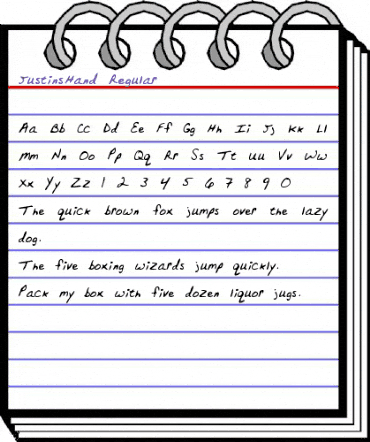 JustinsHand Regular
Aa Bb Cc Dd Ee Ff Gg Hh Ii Jj Kk Ll
Mm Nn Oo Pp Qq Rr Ss Tt Uu Vv Ww
Xx Yy Zz 1 2 3 4 5 6 7 8 9 0
The quick brown fox jumps over the lazy
dog.
The five boxing wizards jump quickly.
Pack my box with five dozen liquor jugs.